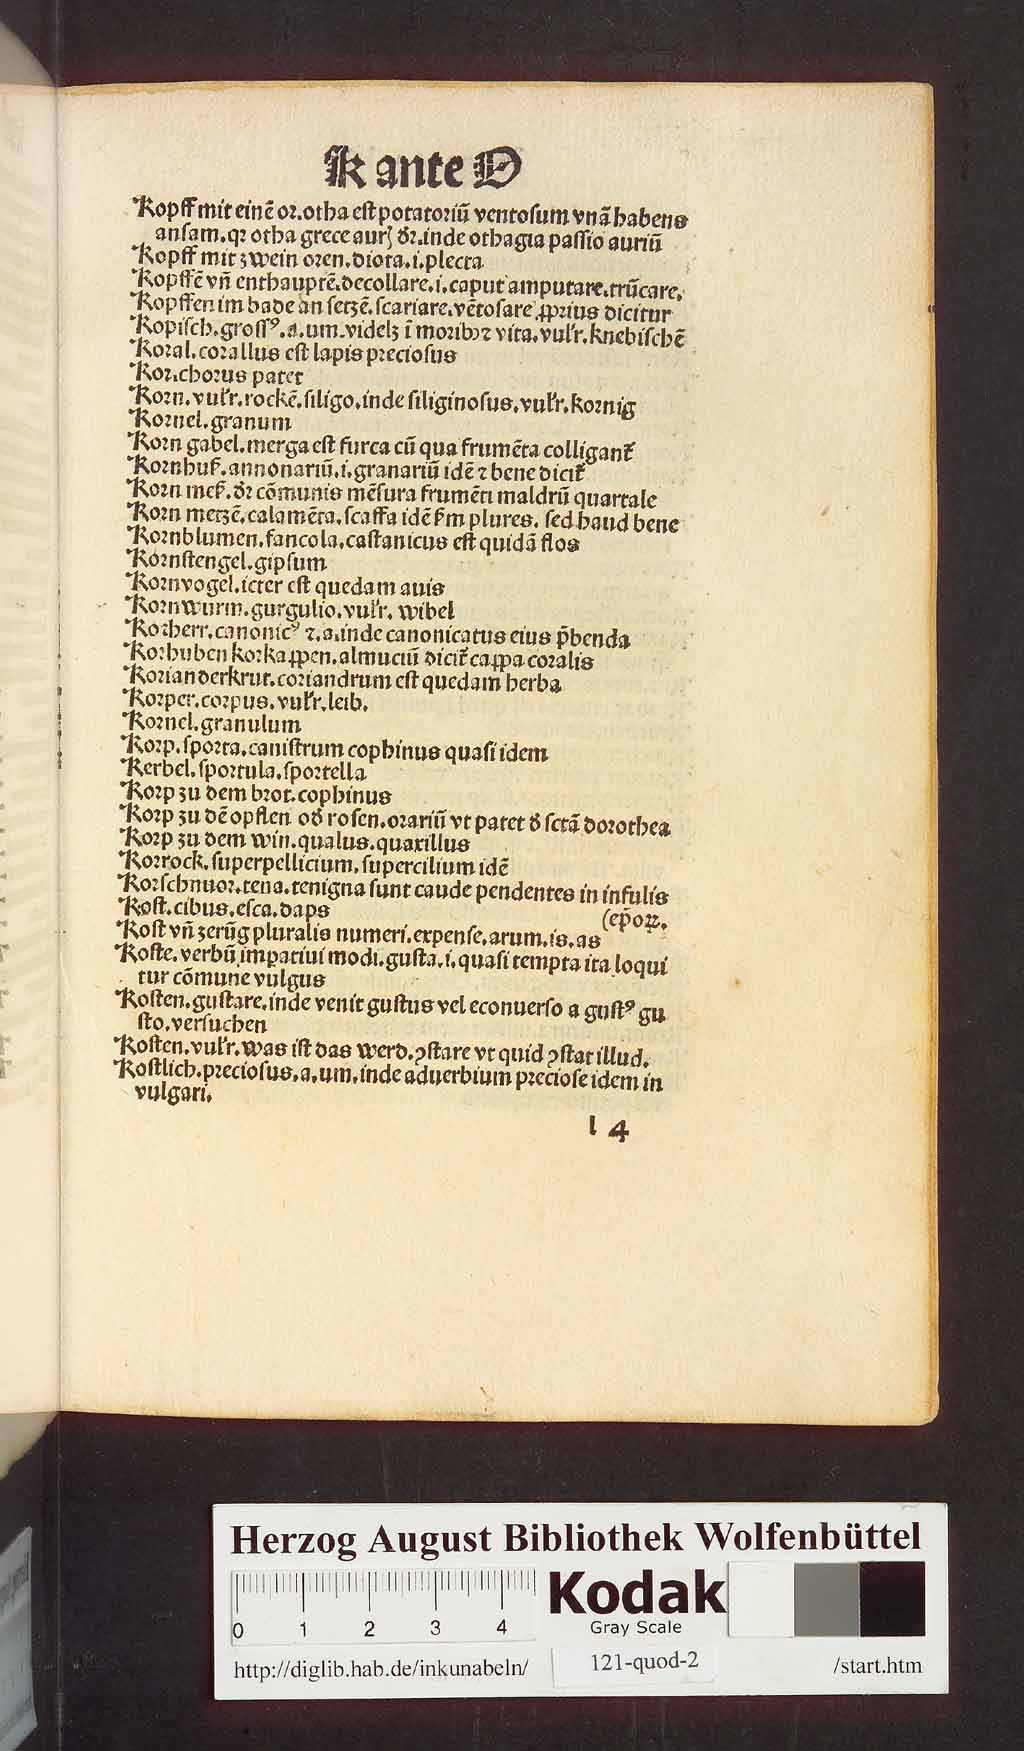 K ante O
Kopff mit einē or. otha est potatoriū ventosum vnā habens
ansam. qꝛ otha grece aurꝭ dꝛ. inde othagia passio auriū
Kopff mit zwein oren. diota. i. plecta
Kopffē vñ enthauptē. decollare. i. caput amputare. trūcare.
Kopffen im bade an setzē. scariare. vētosare ꝓprius dicitur
Kopisch. grossꝰ. a. um. videlꝫ ī moribꝫ ⁊ vita. vulꝛ. knebischē
Koral. corallus est lapis preciosus
Kor. chorus patet
Korn. vulꝛ. rockē. siligo. inde siliginosus. vulꝛ. kornig
Kornel. granum
Korn gabel. merga est furca cū qua frumēta colligant̃
Kornhuß. annonariū. i. granariū idē ⁊ bene dicit̃
Korn meß. dꝛ cōmunis mēsura frumēti maldrū quartale
Korn metzē. calamēta. scaffa idē ẜm plures. sed haud bene
Kornblumen. fancola. castanicus est quidā flos
Kornstengel. gipsum
Kornvogel. icter est quedam auis
Kornwurm. gurgulio. vulꝛ. wibel
Korherr. canonicꝰ ⁊. a. inde canonicatus eius p̄benda
Korhuben korkappen. almuciū dicit̃ cappa coralis
Korianderkrut. coriandrum est quedam herba
Korper. corpus. vulꝛ. leib.
Kornel. granulum
Korp. sporta. canistrum cophinus quasi idem
Kerbel. sportula. sportella
Korp zu dem brot. cophinus
Korp zu dē opflen od̄ rosen. orariū vt patet d̄ sctā dorothea
Korp zu dem win. qualus. quaxillus
Korrock. superpellicium. supercilium idē
Korschnuor. tena. tenigna sunt caude pendentes in infulis
Kost. cibus. esca. daps (ep̄oꝝ.
Kost vñ zerūg pluralis numeri. expense. arum. is. as
Koste. verbū impatiui modi. gusta. i. quasi tempta ita loqui
tur cōmune vulgus
Kosten. gustare. inde venit gustus vel econuerso a gustꝰ gu
sto. versuchen
Kosten. vulꝛ. was ist das werd. ꝯstare vt quid ꝯstat illud.
Kostlich. preciosus. a. um. inde aduerbium preciose idem in
vulgari.
l 4
Herzog August Bibliothek Wolfenbüttel
0 1 2 3 4
Kodak
Gray Scale
http://diglib.hab.de/inkunabeln/ 121-quod-2 /start.htm